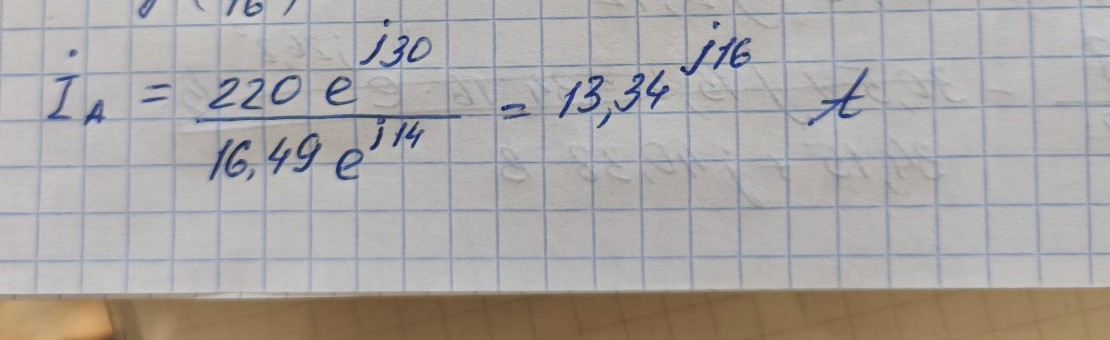 (16)
İ_A = 220 e^j30 / 16,49 e^j14 = 13,34^j16 A